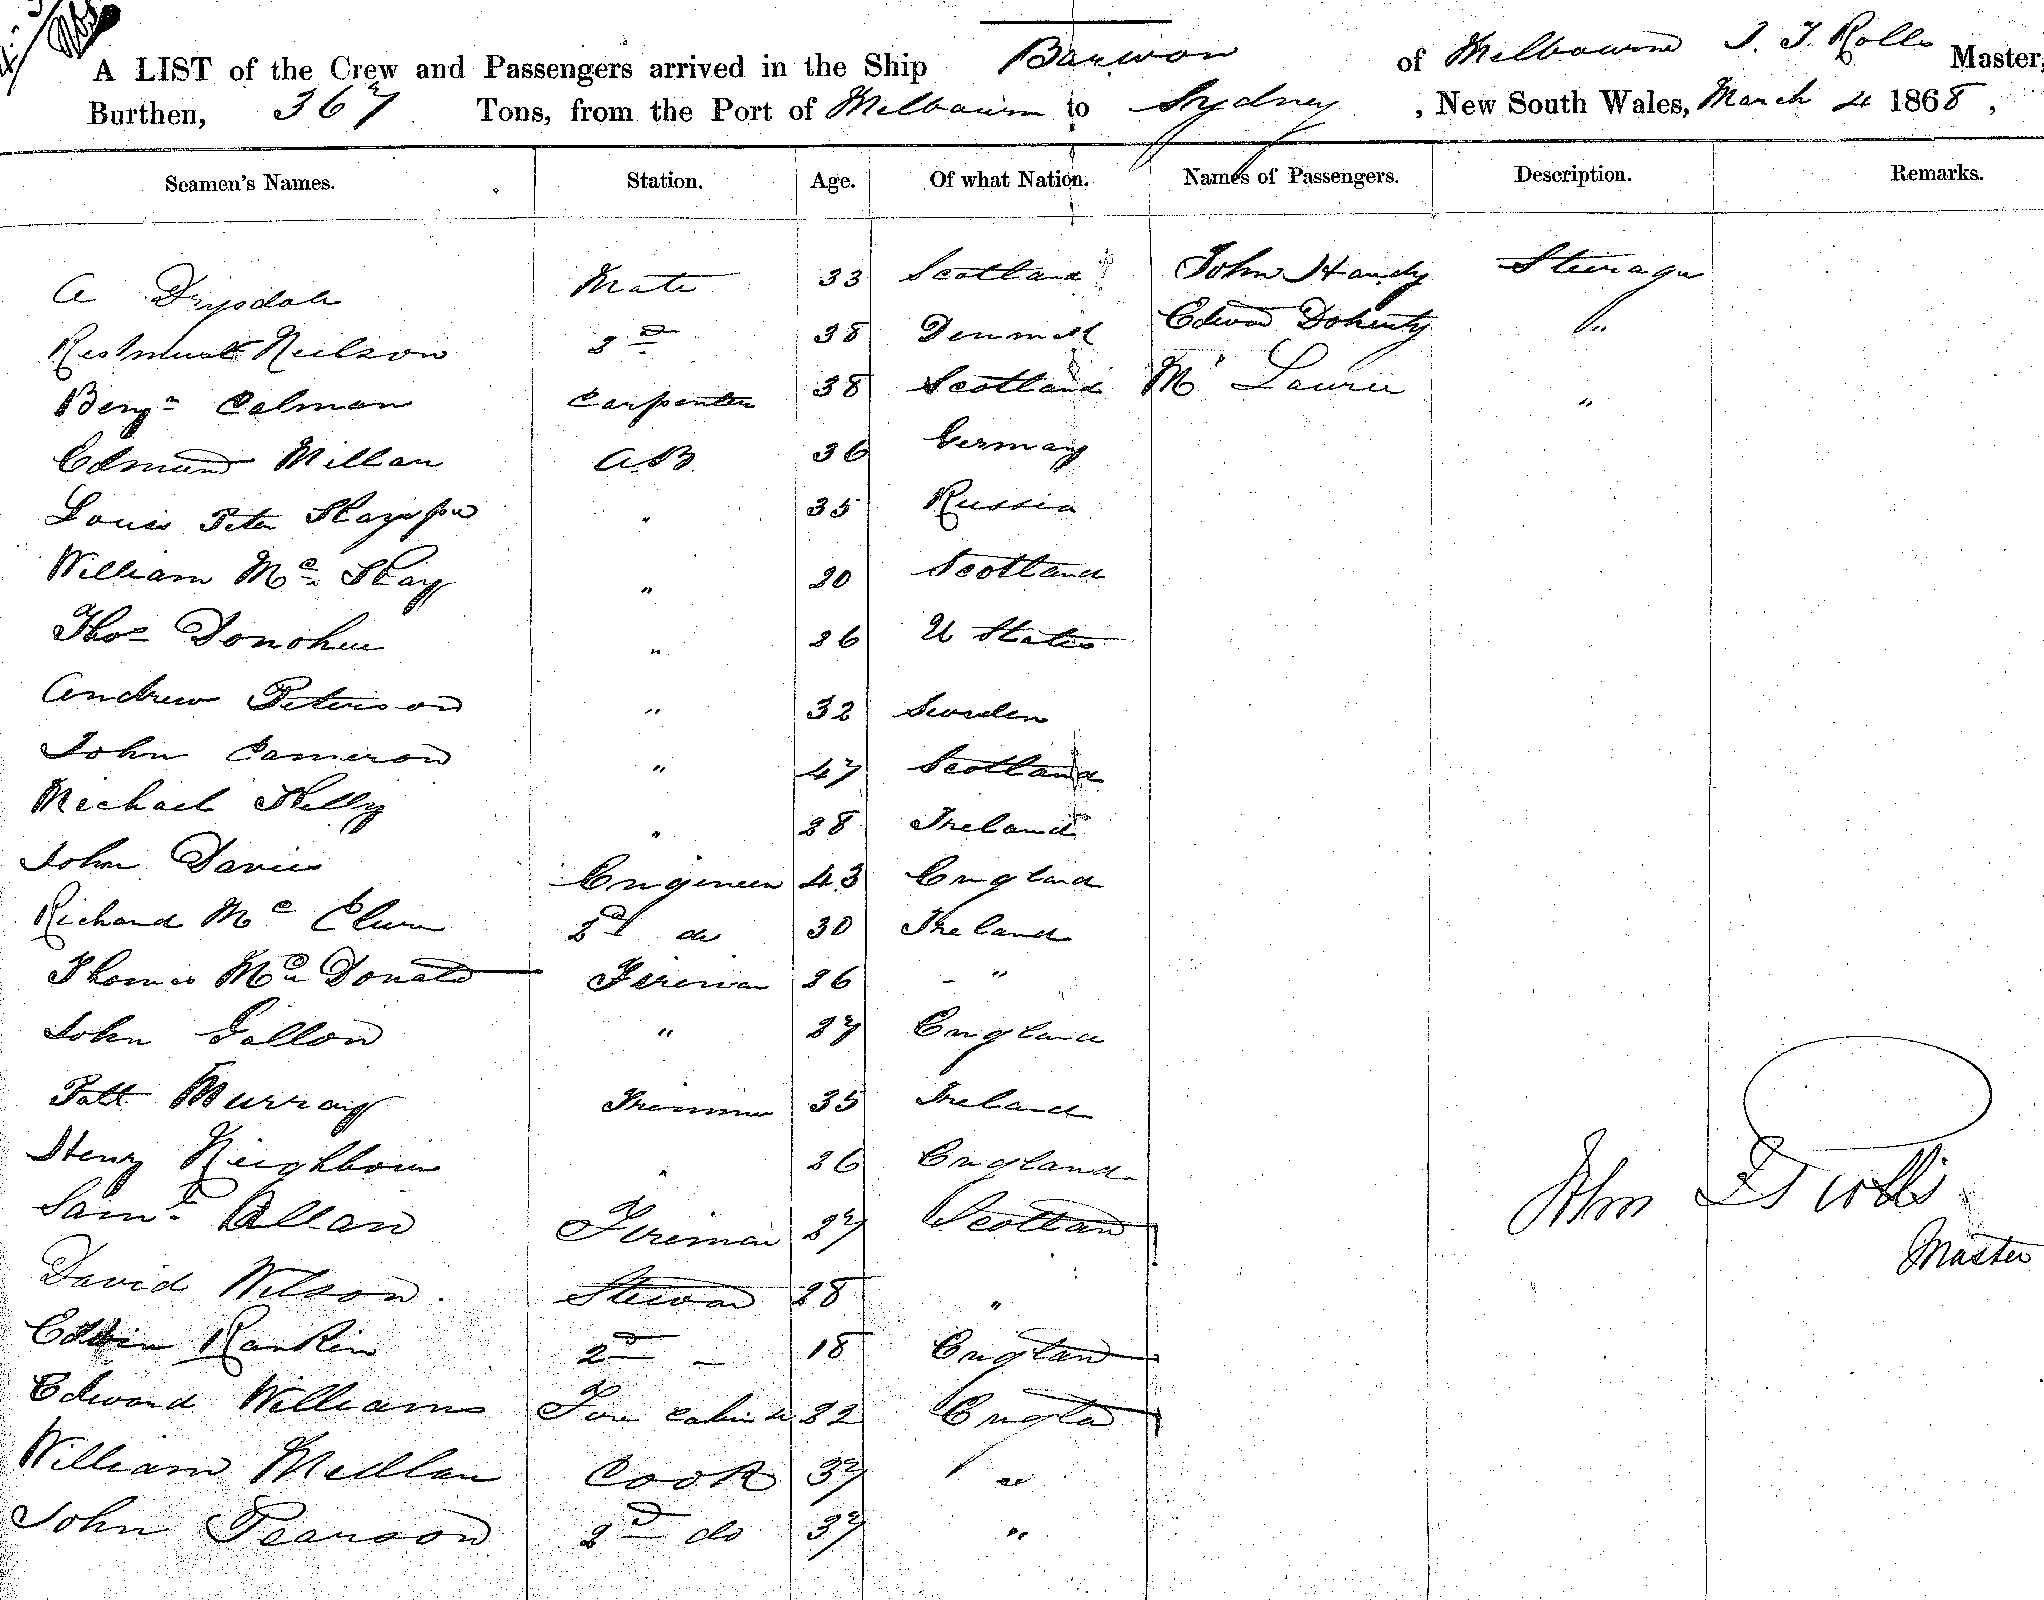 A LIST of the Crew and Passengers arrived in the Ship Barwon of Melbourne J. J. Rolls Master,
Burthen, 367 Tons, from the Port of Melbourn to Sydney, New South Wales, March 4 1868,
Seamen's Names. Station. Age. Of what Nation. Names of Passengers. Description. Remarks.
A Drysdale Mate 33 Scotland John Handy Steerage
Neilson 2nd 38 Denmark Edwd Doherty "
Benjn Colman Carpenter 38 Scotland Mr Laurie "
Edmund Millan A.B. 36 Germany
Louis Peter " 35 Russia
William Mc Kay " 20 Scotland
Thos Donohue " 26 U States
Andrew Peterson " 32 Sweden
John Cameron " 47 Scotland
Michael Kelly " 28 Ireland
John Davies Engineer 43 England
Richard Mc Clure 2nd do 30 Ireland
Thomas Mc Donald Fireman 26 "
John Gallon " 27 England
Patt Murray Trimmer 35 Ireland
Henry Neighbour " 26 England
Saml Allan Fireman 27 Scotland
David Wilson. Steward 28 "
Edwin Rankin 2nd - 18 England
Edward Williams Fore Cabin 22 Engla
William Medlan Cook 37 "
John Pearson 2nd do 37 "
John Rolls
Master